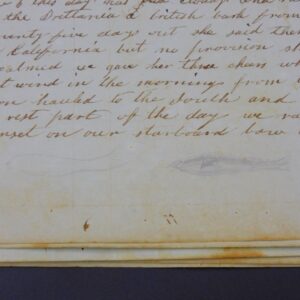 this day
the Brittania a british bark from
twenty five days out she said the
California but no provision
becalmed we gave her three
wind in the mornings from
hauled to the South and
rest part of the day we
on our starboard bow